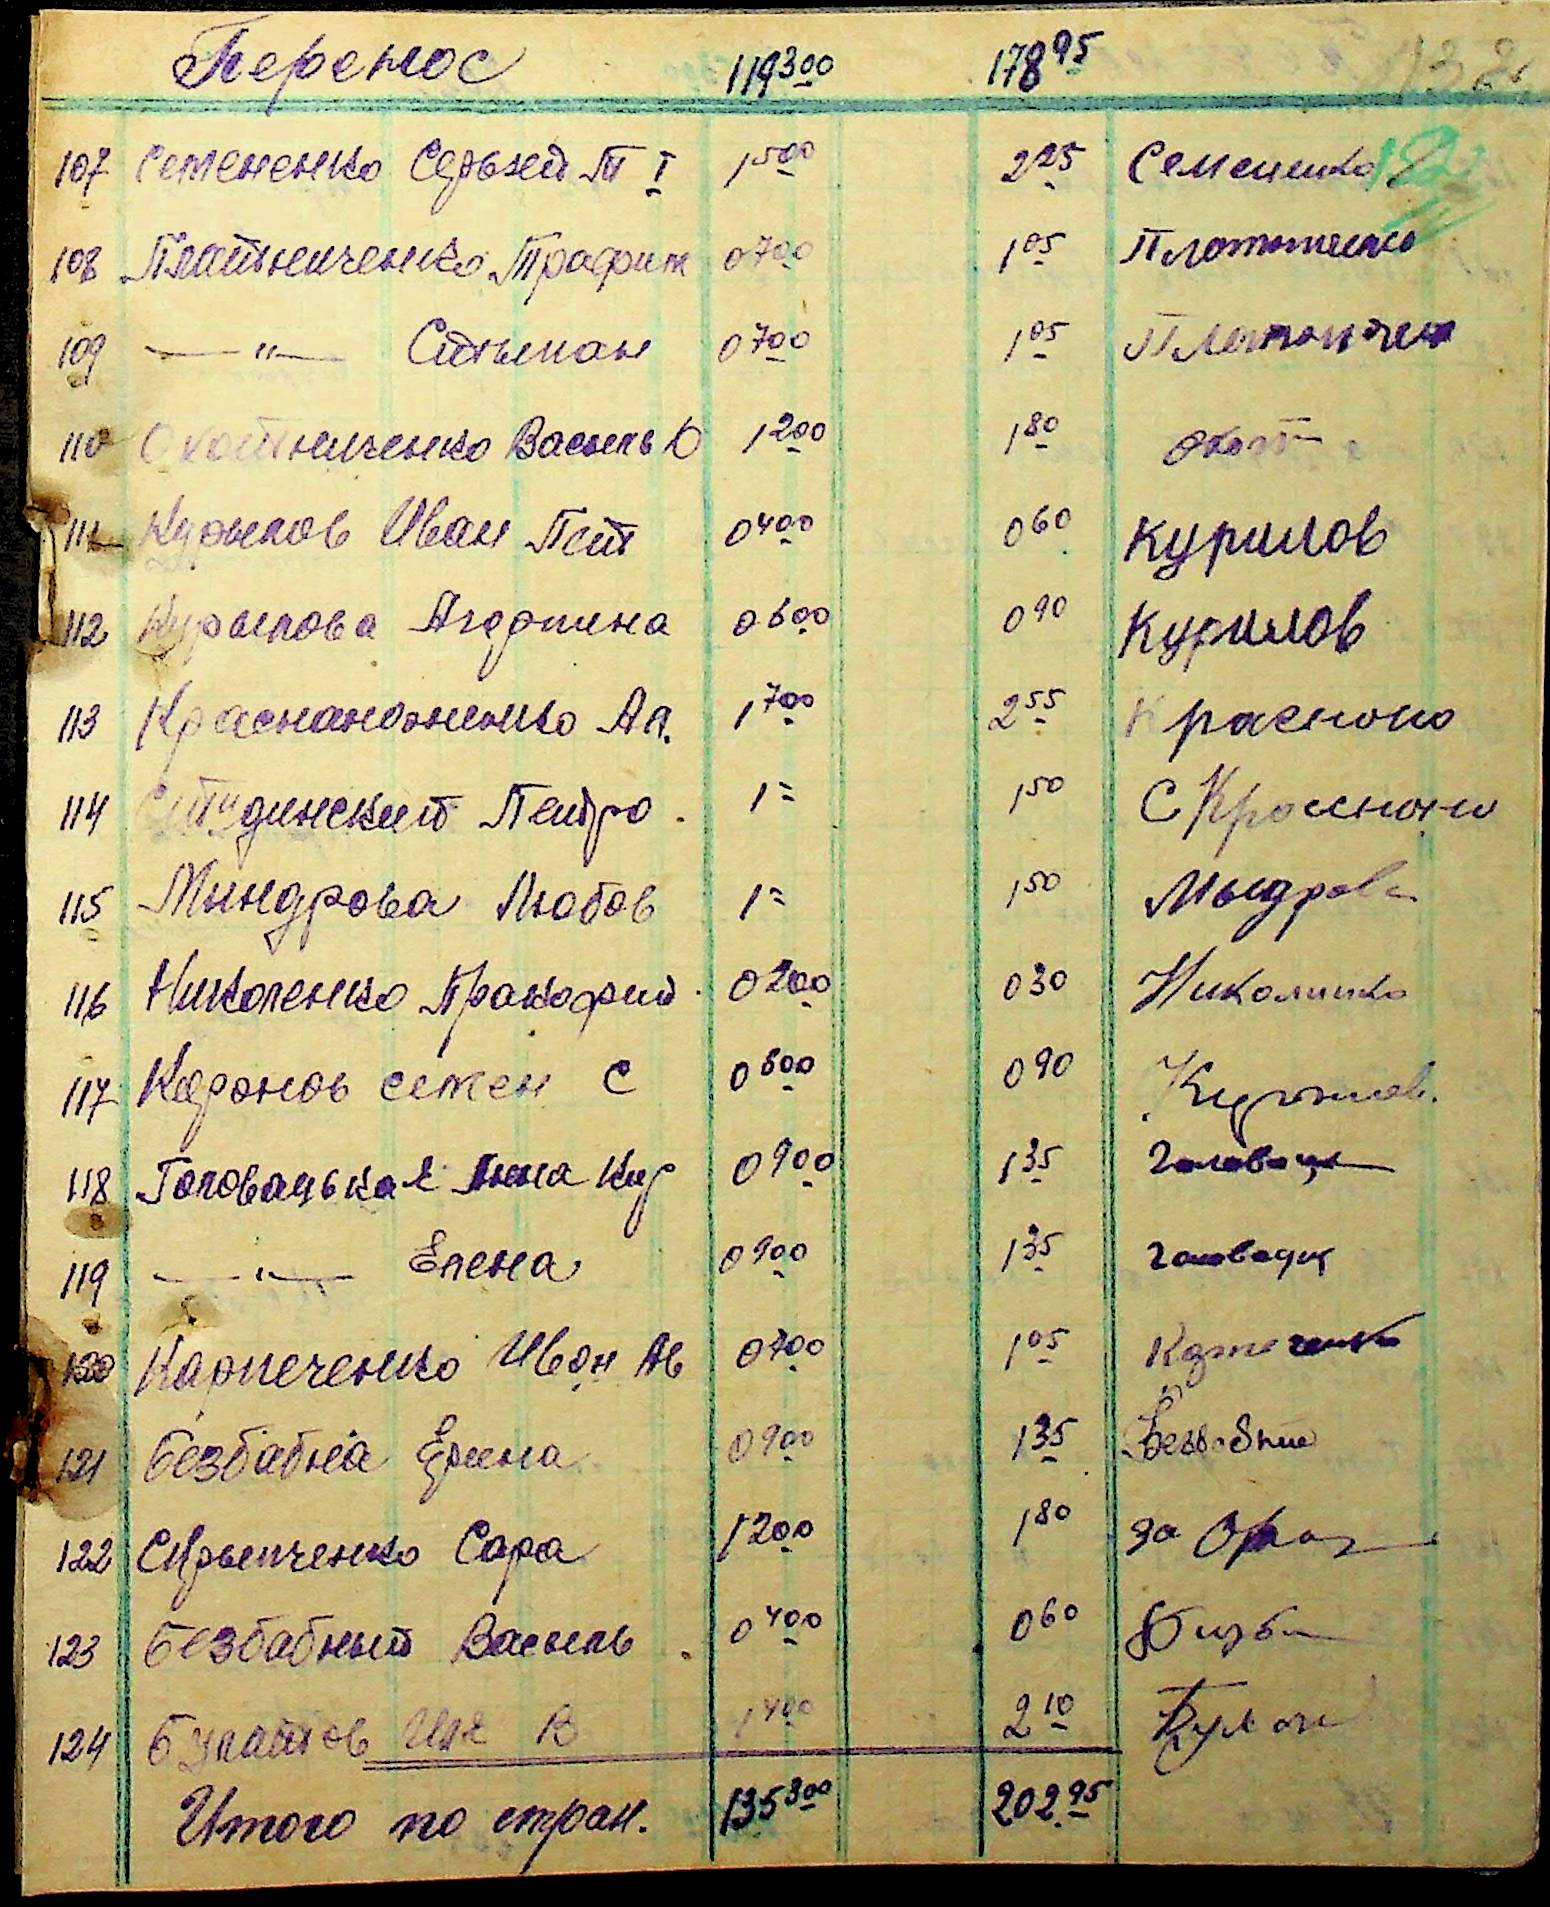 Перенос 119300 17895 132
107 Семененко Серьхей Т I 1500 225 Семененко
108 Плотниченко Трафим 0700 105 Плотниченко
109 —"— Стыпан 0700 105 Плотничен
110 Охотниченко Васыль Ю 1200 180 Охот
111 Курылов Иван Пет 0400 060 Курилов
112 Курылова Агафина 0600 090 Курилов
113 Краснаноженко Ап. 1700 255 Красноно
114 Пейтро 1= 150 С Красноно
115 Мындрова Любов 1= 150 Мындрова
116 Николенко Пракофий 0200 030 Николенко
117 семен С 0600 090
118 Головацькая Анна Кир 0900 135 Головацк
119 —"— Елена 0900 135 Головацк
120 Карпеченко Иван Ав 0700 105
121 Безбабна Ерина 0900 135
122 Скрыпченко Сара 1200 180 за
123 Безбабный Васыль 0400 060
124 Булаттов Илє В 1400 210
Итого по стран. 135300 20295